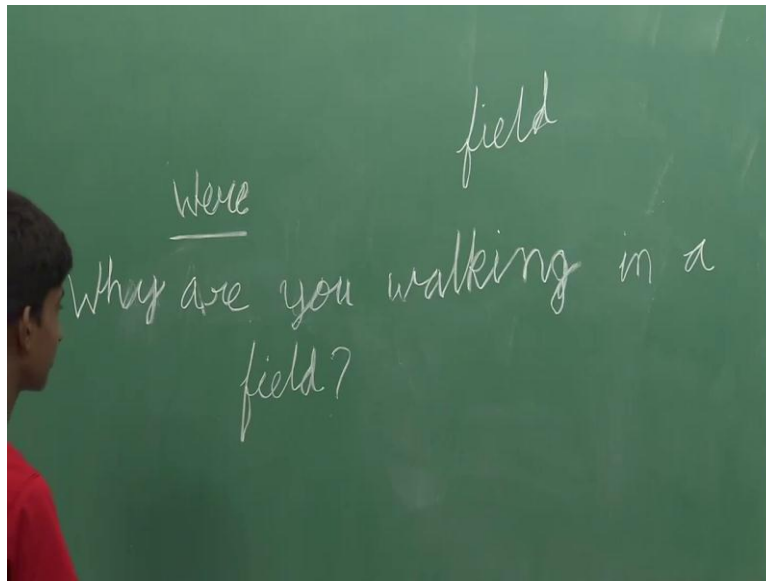 field
Were
Why are you walking in a
field?